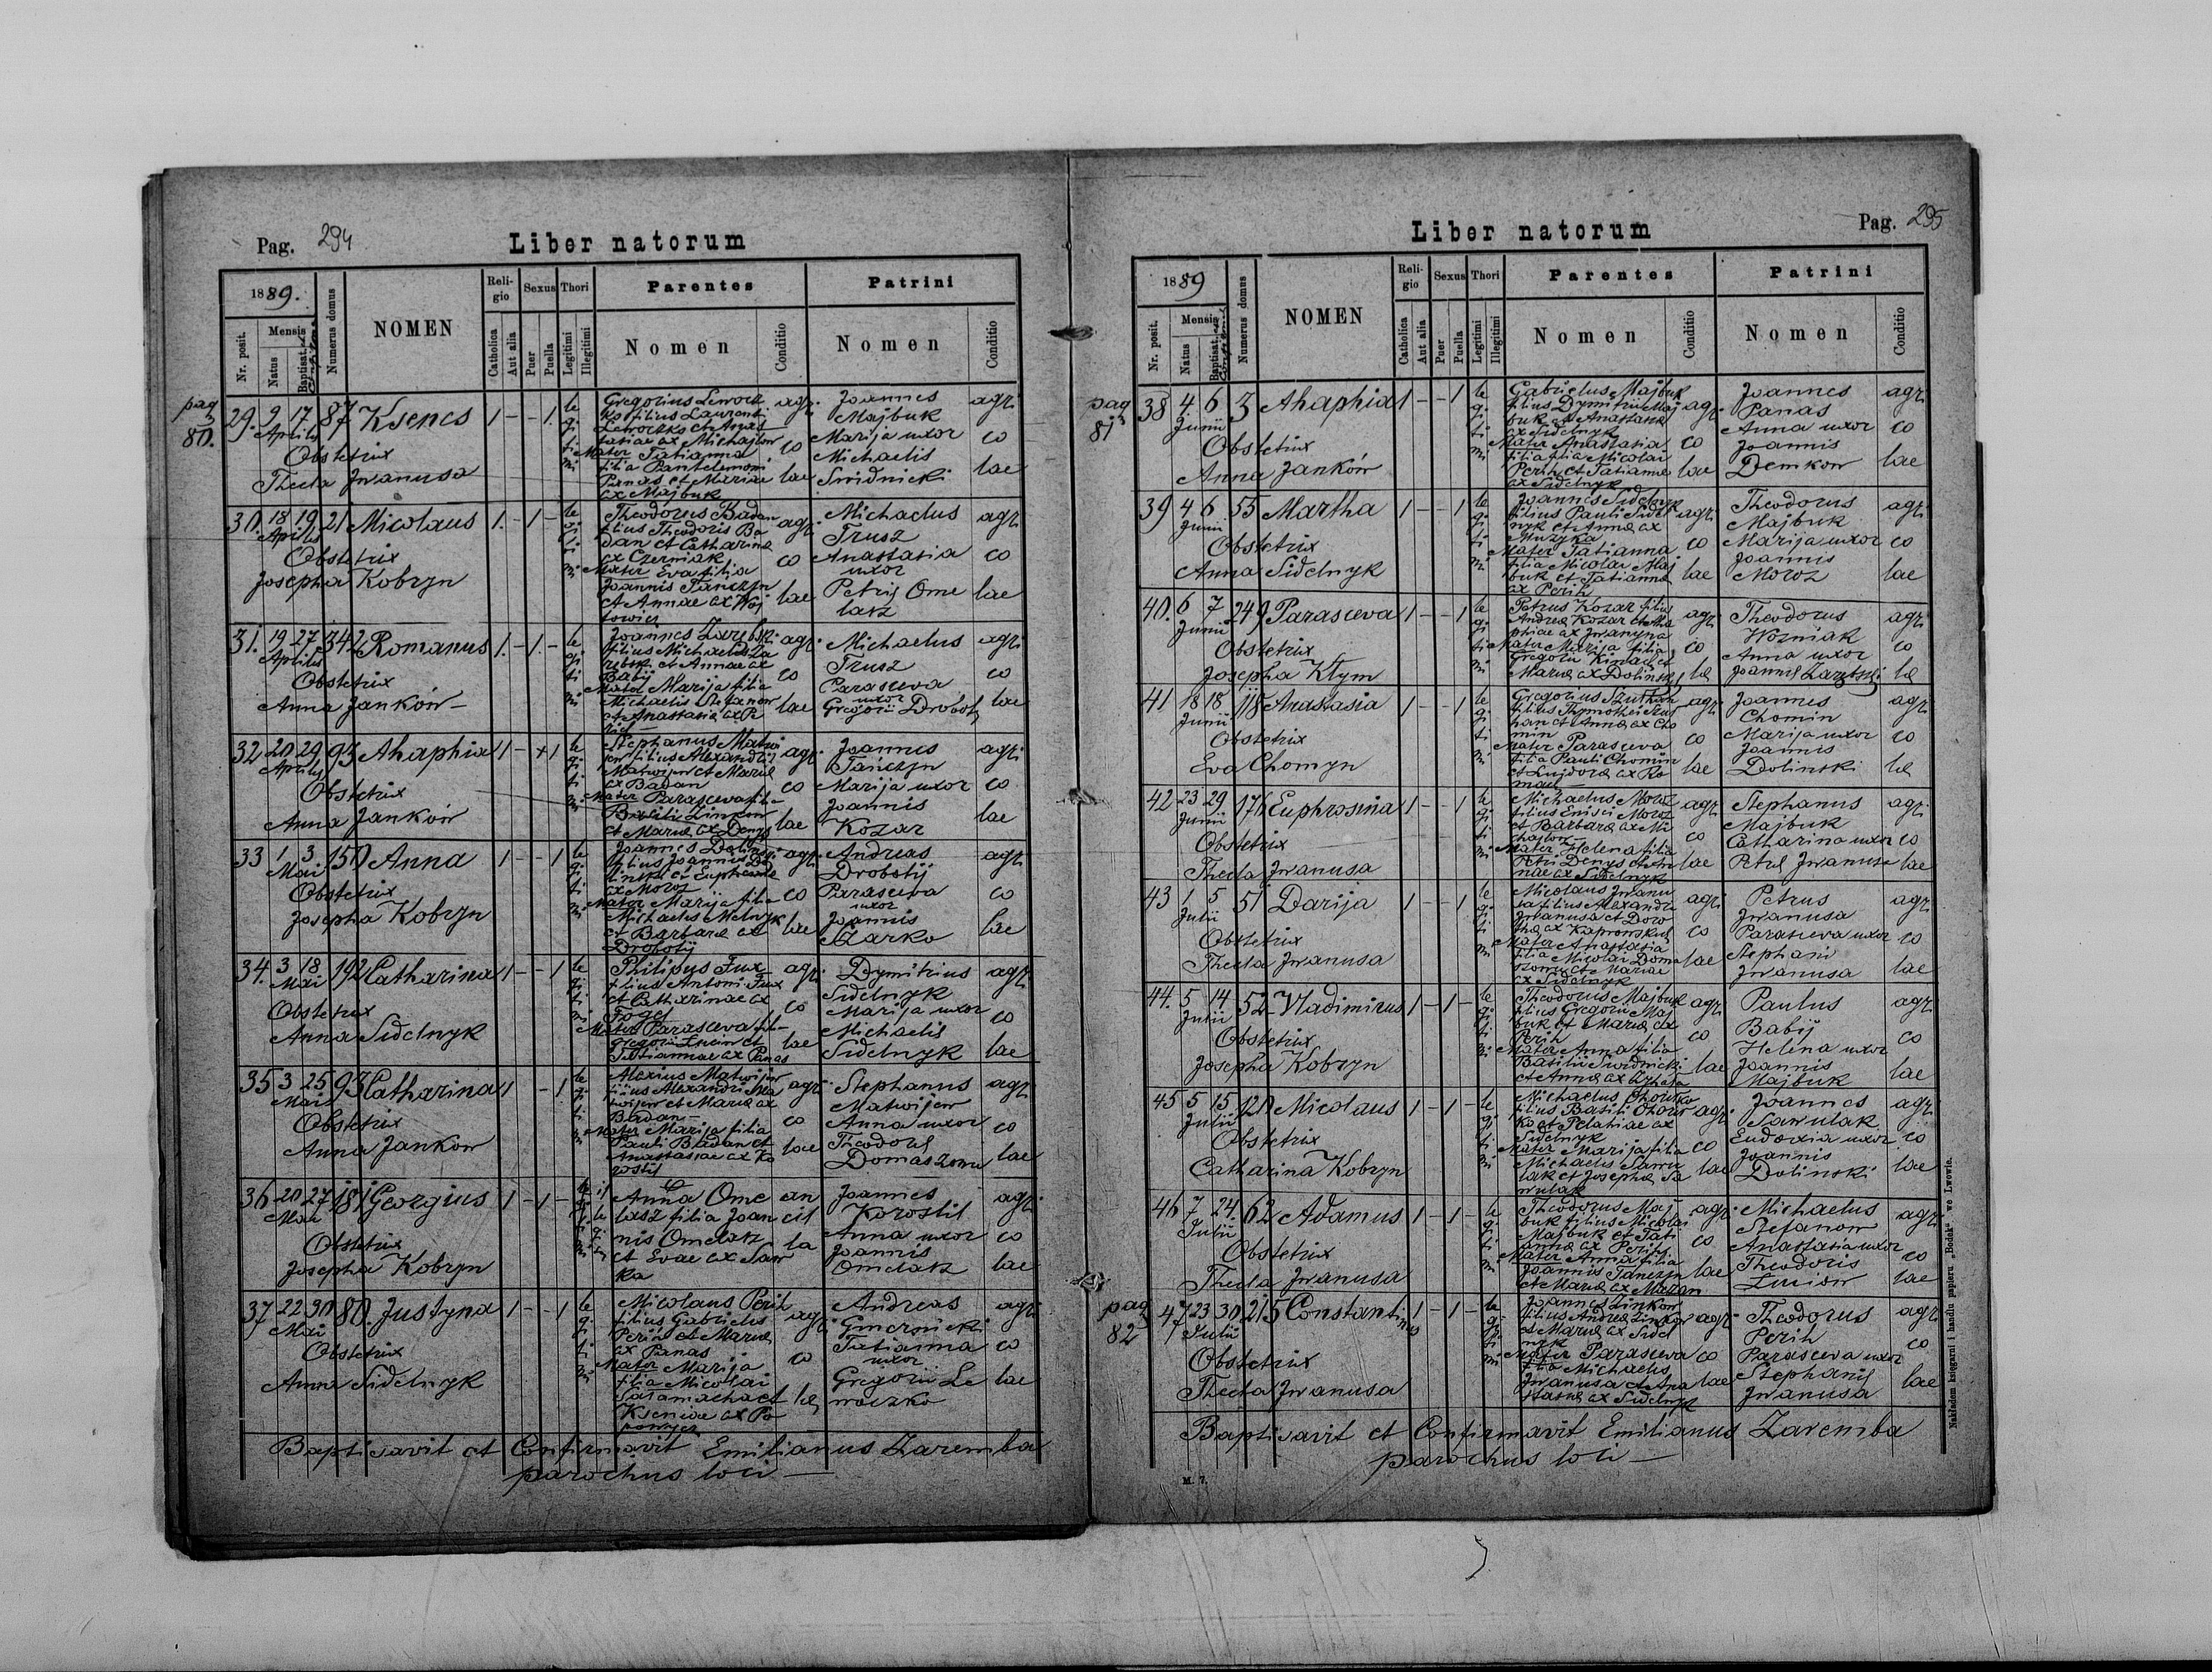 Pag. 294
Liber natorum
1889.
Nr. posit.
Mensis
Natus
Baptisat.
Numerus domus
NOMEN
Religio
Catholica
Aut alia
Sexus
Puer
Puella
Thori
Legitimi
Illegitimi
Parentes
Nomen
Conditio
Patrini
Nomen
Conditio
pag
80.
29. 9 17 87 Ksenes 1 - - 1
Aprilis
Obstetrix
Thecla Jwanusa
legitimi
Gregorius Lewocz
ko filius Laurenti
Lewoczko et Anas
tasiae ex Michajlow
Mater Tatianna
filia Pantelemoni
Panas et Mariae
ex Majbuk
agricolae
Joannes
Majbuk
Marija uxor
Michaelis
Swidnicki
agricolae
30. 18 19 21 Nicolaus 1. - 1 -
Aprilis
Obstetrix
Josepha Kobryn
legitimi
Theodorus Badan
filius Theodoris Ba
dan et Catharinae
ex Czerniak
Mater Eva filia
Joannis Tanczyn
et Annae ex Woj
towicz
agricolae
Michaelus
Trusz
Anastasia
uxor
Petrij Ome
lasz
agricolae
31. 19 27 342 Romanus 1. - 1. -
Aprilis
Obstetrix
Anna Jankón -
legitimi
Joannes Zarebski
filius Michaelis Za
rebski et Annae ex
Babij
Mater Marija filia
Michaelis Stefanow
et Anastasiae ex Pe
rih
agricolae
Michaelus
Trusz
Parasceva
uxor
Gregorii Drobotij
agricolae
32 20 29 93 Ahaphia 1 - + 1
Aprilis
Obstetrix
Anna Jankón
legitimi
Stephanus Matwi
jew filius Alexandrij
Matwijew et Mariae
ex Badan
Mater Parasceva filia
Basilii Zinkow
et Mariae ex Denys
agricolae
Joannes
Tańczyn
Marija uxor
Joannis
Kozar
agricolae
33 1 3 150 Anna 1 - - 1
Mai
Obstetrix
Josepha Kobryn
legitimi
Joannes Dolinski
filius Joannis Do
linski et Euphemiae
ex Moroz
Mater Marija filia
Michaelis Melnyk
et Barbarae ex
Drobotij
agricolae
Andreas
Drobotij
Parasceva
uxor
Joannis
Czarko
agricolae
34. 3 18 192 Catharina 1 - - 1
Mai
Obstetrix
Anna Sidelnyk
legitimi
Philipus Fux
filius Antoni Fux
et Catharinae ex
Fogel
Mater Parasceva fil-
Gregorii Lucin et
Tatiannae ex Panas
agricolae
Dymitrius
Sidelnyk
Marija uxor
Michaelis
Sidelnyk
agricolae
35 3 25 93 Catharina 1 - 1
Mai
Obstetrix
Anna Jankow
legitimi
Alexius Matwijew
filius Alexandri Ma
twijew et Mariae ex
Badan -
Mater Marija filia
Pauli Badan et
Anastasiae ex Ko
rostij
agricolae
Stephanus
Matwijew
Anna uxor
Theodorus
Domaszowe
agricolae
36 20 27 181 Georgius 1 - 1 -
Mai
Obstetrix
Josepha Kobryn
Anna Ome
lasz filia Joan
nis Omelasz
et Evae ex Saw
ka
ancilla
Joannes
Korostil
Anna uxor
Joannis
Omelasz
agricolae
37 22 30 80. Justyna 1 - - 1
Mai
Obstetrix
Anna Sidelnyk
legitimi
Nicolaus Perih
filius Gabrielis
Perih et Mariae
ex Panas
Mater Marija
filia Nicolai
Salamacha et
Kseniae ex Po
powycz
agricolae
Andreas
Gmernicki
Tatianna
uxor
Gregorii Le
woczko
agricolae
Baptisavit et Confirmavit Emilianus Zaremba
parochus loci -
Pag. 295
Liber natorum
1889
Nr. posit.
Mensis
Natus
Baptisat.
Numerus domus
NOMEN
Religio
Catholica
Aut alia
Sexus
Puer
Puella
Thori
Legitimi
Illegitimi
Parentes
Nomen
Conditio
Patrini
Nomen
Conditio
pag
81
38 4 6 3 Ahaphia 1 - - 1
Junii
Obstetrix
Anna Jankón
legitimi
Gabrielus Majbuk
filius Dymitrii Maj
buk et Anastasiae
ex Sidelnyk
Mater Anastasia
filia Nicolai
Perih et Tatiannae
ex Sidelnyk
agricolae
Joannes
Panas
Anna uxor
Joannis
Demkow
agricolae
39 4 6 55 Martha 1 - - 1
Junii
Obstetrix
Anna Sidelnyk
legitimi
Joannes Sidelnyk
filius Pauli Sidel
nyk et Annae ex
Muzyka
Mater Tatianna
filia Nicolai Maj
buk et Tatiannae
ex Perih
agricolae
Theodorus
Majbuk
Marija uxor
Joannis
Moroz
agricolae
40. 6 7 249 Parasceva 1 - - 1
Junii
Obstetrix
Josepha Klym
legitimi
Petrus Kozar filius
Andreae Kozar et Aha
phiae ex Jwanyna
Mater Marija filia
Gregorii Kinach et
Mariae ex Dolinskij
agricolae
Theodorus
Wozniak
Anna uxor
Joannis Zarebski
agricolae
41 18 18 118 Anastasia 1 - - 1
Junii
Obstetrix
Eva Chomyn
legitimi
filius Thymothei
et Annae ex Cho
min
Mater Parasceva
filia Pauli Chomin
et Luidorae ex Ro
man
agricolae
Joannes
Chomin
Marija uxor
Joannis
Dolinski
agricolae
42 23 29 176 Euphrosina 1 - - 1
Junii
Obstetrix
Thecla Jwanusa
legitimi
Michaelus Moroz
filius Enisei Moroz
et Barbarae ex Mi
chajlow
Mater Helena filia
Petri Denys et An
nae ex Sidelnyk
agricolae
Stephanus
Majbuk
Catharina uxor
Petri Jwanusa
agricolae
43 1 5 51 Darija 1 - - 1
Julii
Obstetrix
Thecla Jwanusa
legitimi
Nicolaus Jwanu
sa filius Alexandri
Jwanusa et Doro
theae ex Kapronska
Mater Anastasia
filia Nicolai Doma
szowy et Mariae
ex Sidelnyk
agricolae
Petrus
Jwanusa
Parasceva uxor
Stephani
Jwanusa
agricolae
44. 5 14 52 Vladimirus 1 - 1 -
Julii
Obstetrix
Josepha Kobryn
legitimi
Theodorus Majbuk
filius Gregorii Maj
buk et Mariae ex
Perih
Mater Anna filia
Basilii Swidnicki
et Annae ex
agricolae
Paulus
Babij
Helena uxor
Joannis
Majbuk
agricolae
45 5 15 120 Nicolaus 1 - 1 -
Julii
Obstetrix
Catharina Kobryn
legitimi
Michaelus Chowko
filius Basili Chow
ko et Pelatiae ex
Sidelnyk
Mater Marija filia
Michaelis Sawu
lak et Josephae Sa
wulak
agricolae
Joannes
Sawulak
Eudoxia uxor
Joannis
Dolinski
agricolae
46 7 24 62 Adamus 1 - 1 -
Julii
Obstetrix
Thecla Jwanusa
legitimi
Theodorus Maj
buk filius Nicolai
Majbuk et Tati
annae ex Perih
Mater Anna filia
Joannis Tanczyn
et Mariae ex Mazan
agricolae
Michaelus
Stefanow
Anastasia uxor
Theodoris
Luciow
agricolae
pag
82
47 23 30 215 Constantinus 1 - 1 -
Julii
Obstetrix
Thecla Jwanusa
legitimi
Joannes Zinkow
filius Andreae Zinkow
et Mariae ex Sidel
nyk
Mater Parasceva
filia Michaelis
Jwanusa et Ana
stasiae ex Sidelnyk
agricolae
Theodorus
Perih
Parasceva uxor
Stephanij
Jwanusa
agricolae
Baptisavit et Confirmavit Emilianus Zaremba
parochus loci -
M. 7.
Nakładem księgarni i handlu papieru „Bodek“ we Lwowie.